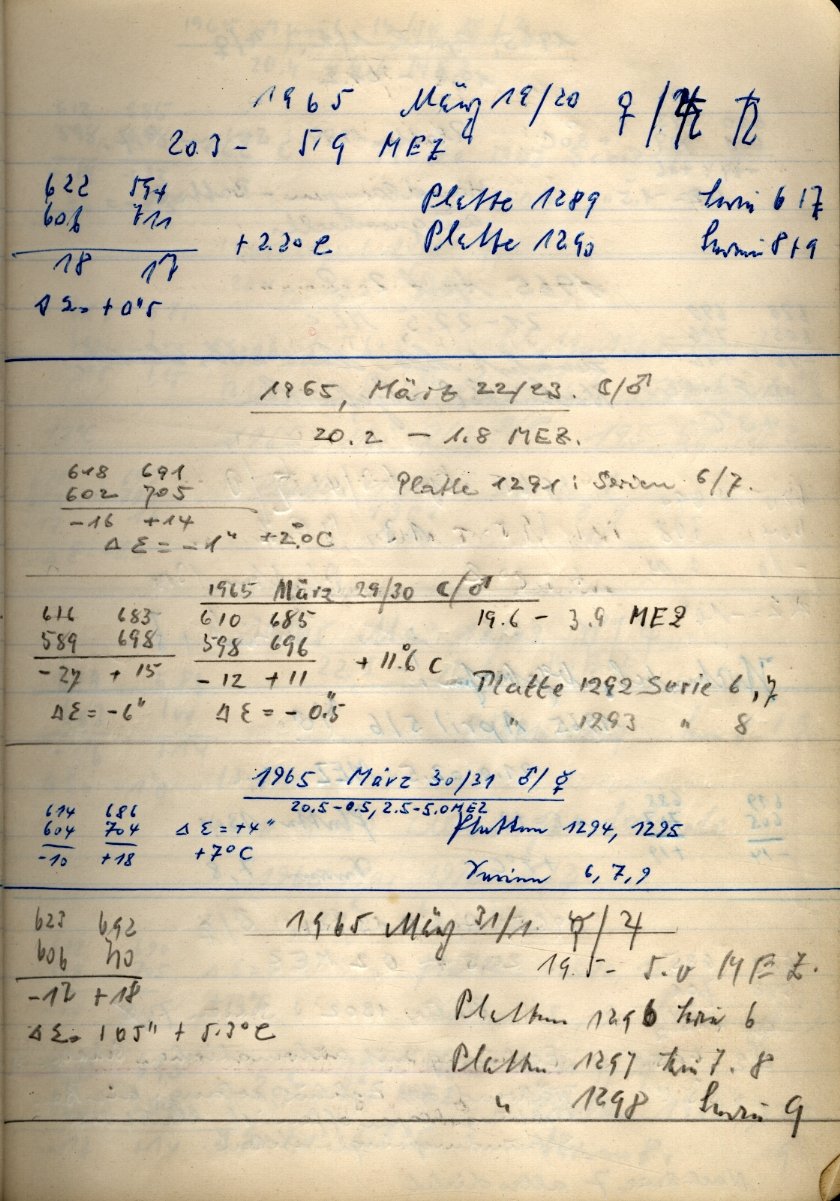 1965 März 19/20 ♀/ ♄
20.3 - 5.9 MEZ
622 594 Platte 1289 Serie 6 + 7
606 711 +2.20 C Platte 1290 Serien 8 + 9
18 17
Δ Σ = + 0"5
1965, März 22/23. ☾/♂
20.2 - 1.8 MEZ.
618 691 Platte 1291: Serien 6/7.
602 705
-16 +14
Δ Σ = -1" +2.°0C
1965 März 29/30 ☾/♂
616 683 610 685 19.6 - 3.9 MEZ
589 698 598 696
-27 +15 -12 +11 + 11.°6 C Platte 1292 Serie 6,7
Δ Σ = -6" Δ Σ = - 0."5 " 1293 " 8
1965 März 30/31 ♂/☿
20.5-0.5, 2.5-5.0 MEZ
614 686 Δ Σ = +4" Platten 1294, 1295
604 704
-10 +18 +7°C Serien 6, 7, 9
623 692 1965 März 31/1. ☿/♃
606 710 19.5 - 5.0 MEZ.
-17 +18 Platten 1296 Serie 6
Δ Σ = + 0.5" + 5.3°C
Platten 1297 Serie 7. 8
" 1298 Serie 9